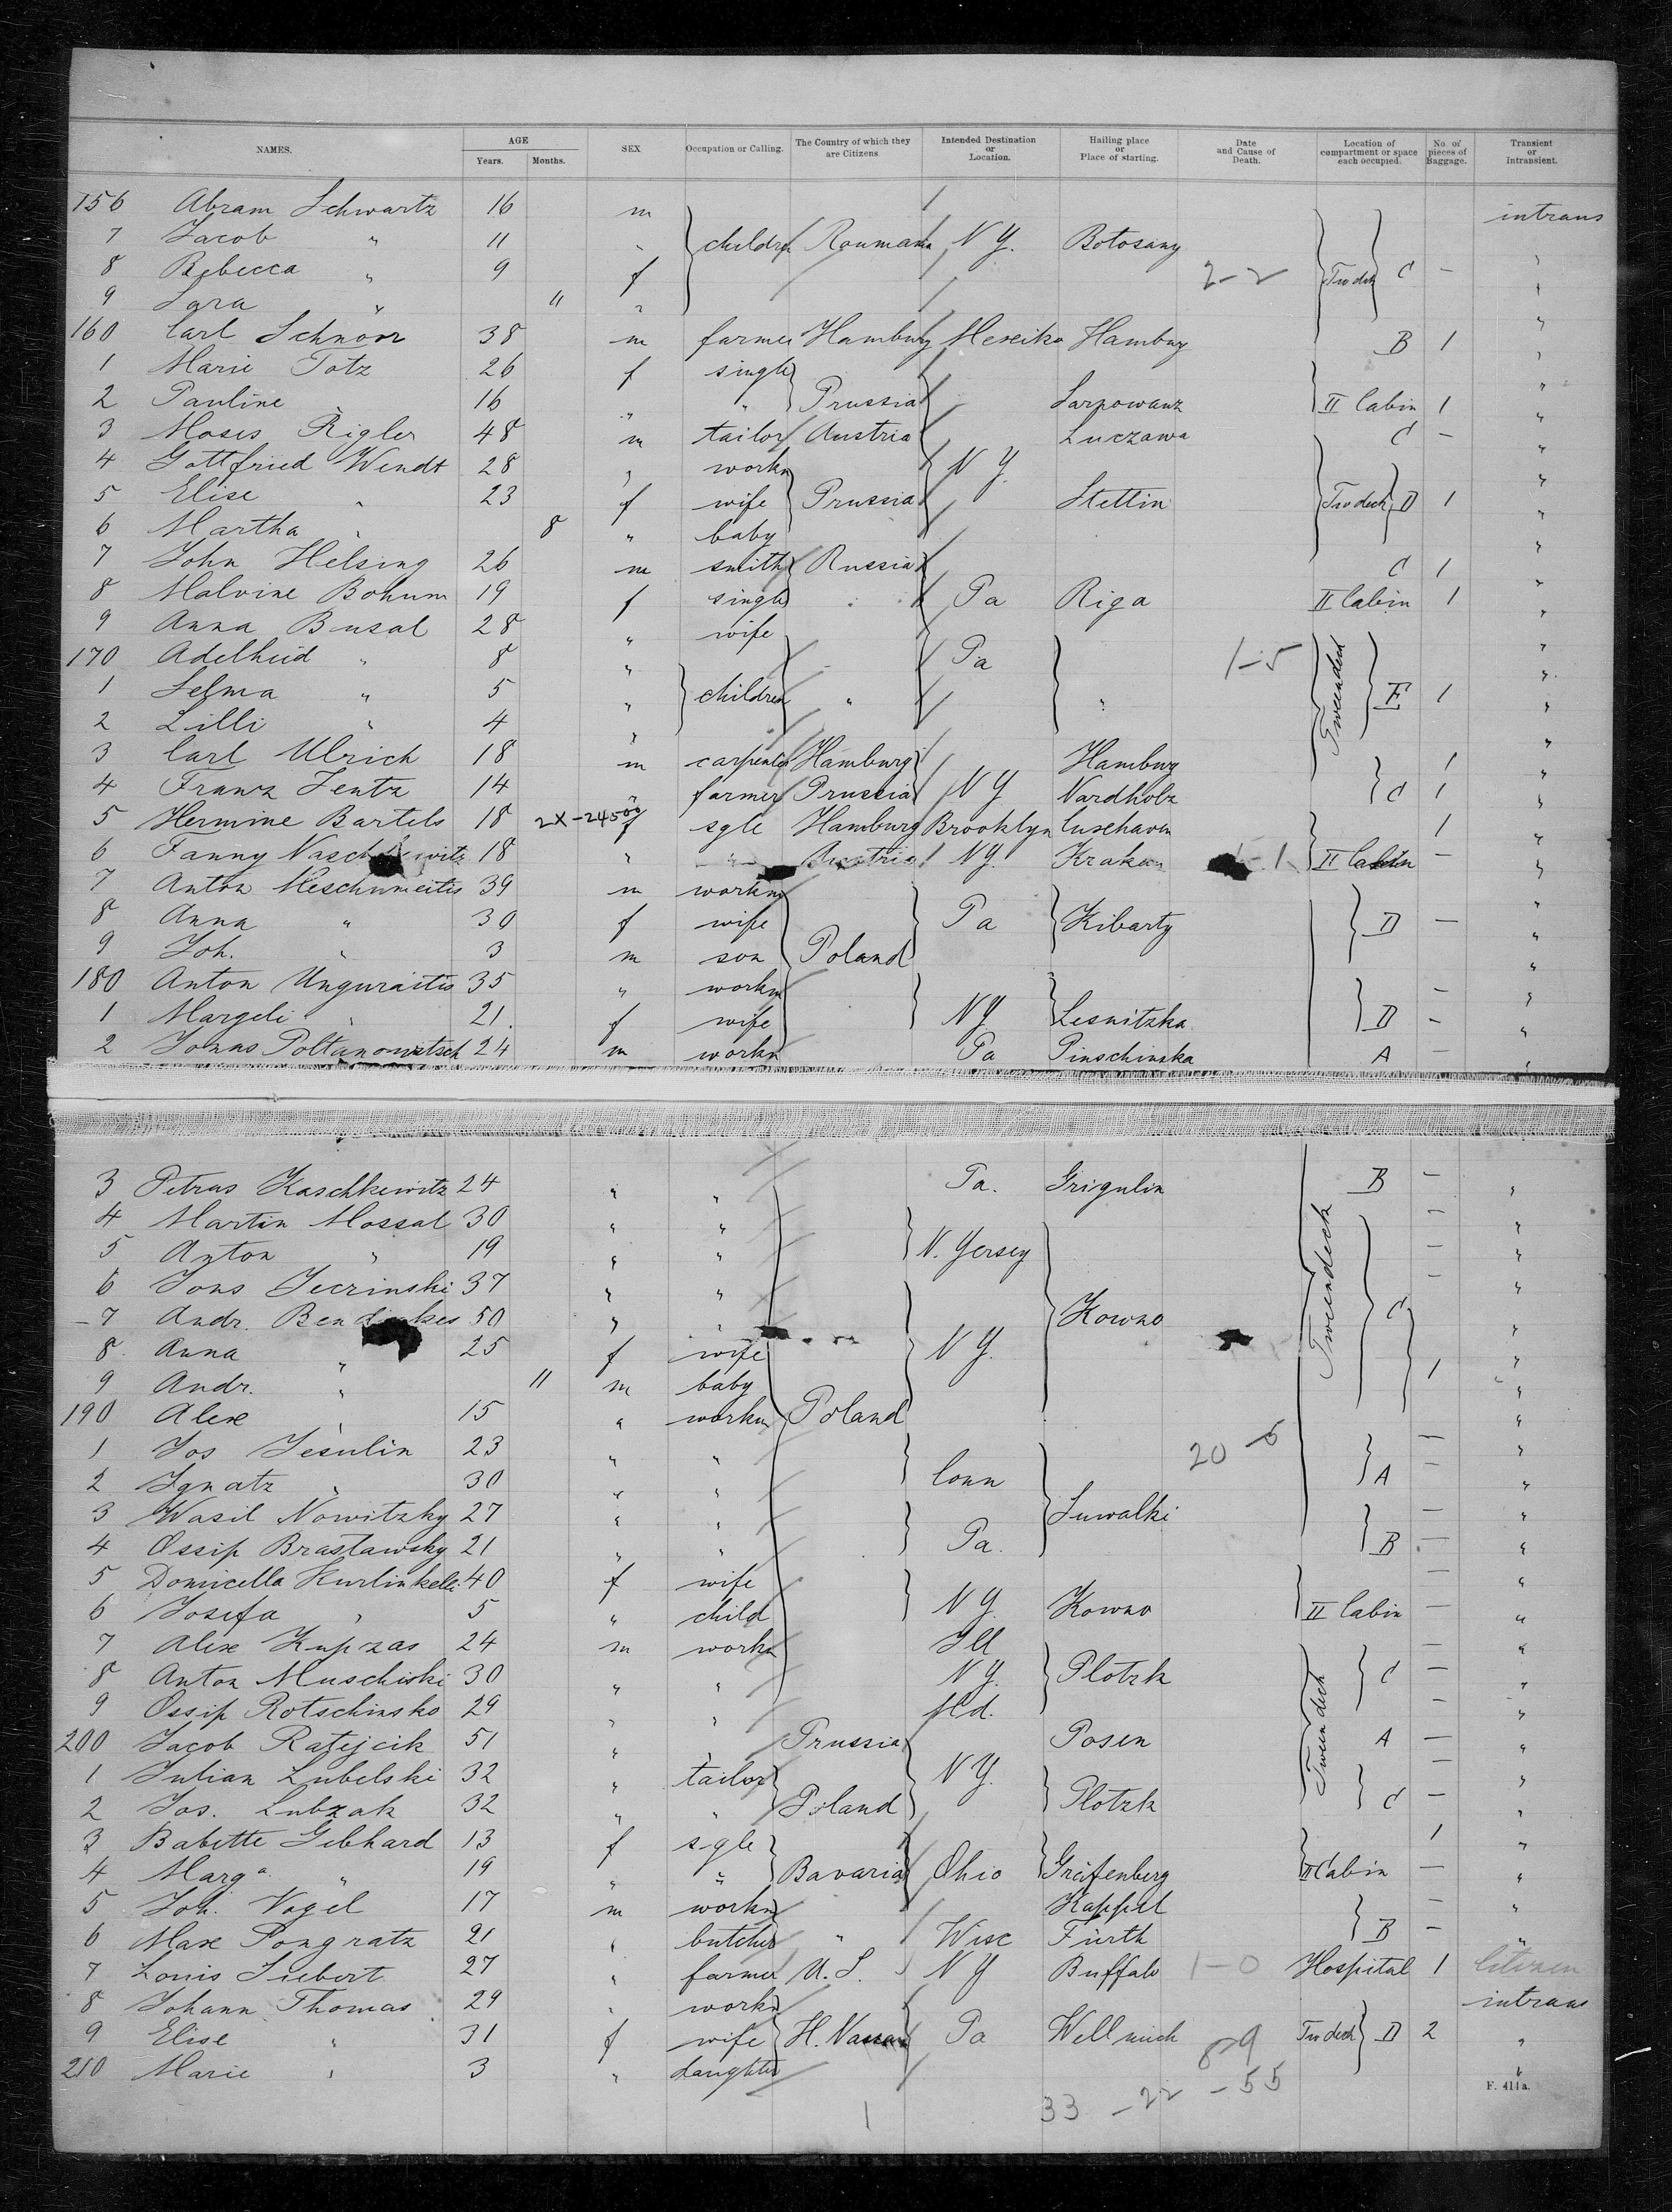 NAMES. AGE Years. Months. SEX Occupation or Calling. The Country of which they are Citizens. Intended Destination or Location. Hailing place or Place of starting. Date and Cause of Death. Location of compartment or space each occupied. No. of pieces of Baggage. Transient or Intransient.
156 Abram Schwartz 16 m intrans
7 Jacob " 11 " children Roumania N Y. Botosany
8 Rebecca " 9 f 2-2 Twdek C - "
9 Sara " 11 " "
160 Carl Schnorr 38 m farmer Hamburg Mexiko Hamburg B 1 "
1 Marie Totz 26 f single "
2 Pauline " 16 " " Prussia II Cabin 1 "
3 Moses Rigler 48 m tailor Austria Luczawa C - "
4 Gottfried Wendt 28 " workm N Y. "
5 Elise " 23 f wife Prussia Stettin Twdeck D 1 "
6 Martha " 8 " baby "
7 John Helsing 26 m smith Russia C 1 "
8 Malvine Bohum 19 f single " Pa Riga II Cabin 1 "
9 Anna Busal 28 " wife "
170 Adelheid " 8 " Pa 1-5 "
1 Selma " 5 " children " " Tweendeck E 1 "
2 Lilli " 4 " "
3 Carl Ulrich 18 m carpenter Hamburg Hamburg 1 "
4 Franz Jentz 14 " farmer Prussia N Y Nardholz C 1 "
5 Hermine Bartels 18 2X-24500 f sgle Hamburg Brooklyn Cuxhaven 1 "
6 Fanny 18 " " Austria N Y. Krakau 1 II Cabin - "
7 Anton Meschumeitis 39 m workm
8 Anna " 30 f wife Pa Kibarty D - "
9 Joh. " 3 m son Poland "
180 Anton Unguraitis 35 " workm - "
1 Margele " 21. f wife N Y Lesnitzka D - "
2 Jonas Poltanowitsch 24 m workm Pa Pinschinska A - "
3 Petrus Kaschkewitz 24 " " Pa. Grigulin B - "
4 Martin Mossal 30 " " - "
5 Anton " 19 " " N. Jersey - "
6 Jons Jecrinski 37 " " - "
7 Andr. 50 " " Kowno Tweendeck C "
8 Anna " 25 f wife N Y. "
9 Andr. " 11 m baby 1 "
190 Alex " 15 " workm Poland "
1 Jos Jesulin 23 " " 20-6 - "
2 Ignatz " 30 " " Conn A - "
3 Wasil Nowitzky 27 " " Suwalki - "
4 Ossip Brastawsky 21 " " Pa. B - "
5 Domicella 40 f wife - "
6 Josefa " 5 " child N Y. Kowno II Cabin - "
7 Alex Kupzas 24 m workm Ill - "
8 Anton Muschiski 30 " " N Y. Plotzk C - "
9 Ossip Rotschinsko 29 " " Md. Tween deck - "
200 Jacob Ratejcik 51 " " Prussia Posen A - "
1 Julian Lubelski 32 " tailor N Y. - "
2 Jos. Lubzak 32 " " Poland Plotzk C - "
3 Babette Gebhard 13 f sgle 1 "
4 Marga " 19 " " Bavaria Ohio Greifenberg II Cabin - "
5 Joh. Vogel 17 m workm Kappel - "
6 Max Pongratz 21 " butcher " Wisc Fürth B - "
7 Louis Siebert 27 " farmer U. S. N Y Buffalo 1-0 Hospital 1 Citizen
8 Johann Thomas 29 " workm intrans
9 Elise " 31 f wife H. Nassau Pa Wellmich Twdeck D 2 "
210 Marie " 3 " daughter "
33 - 22 - 55
F. 411a.